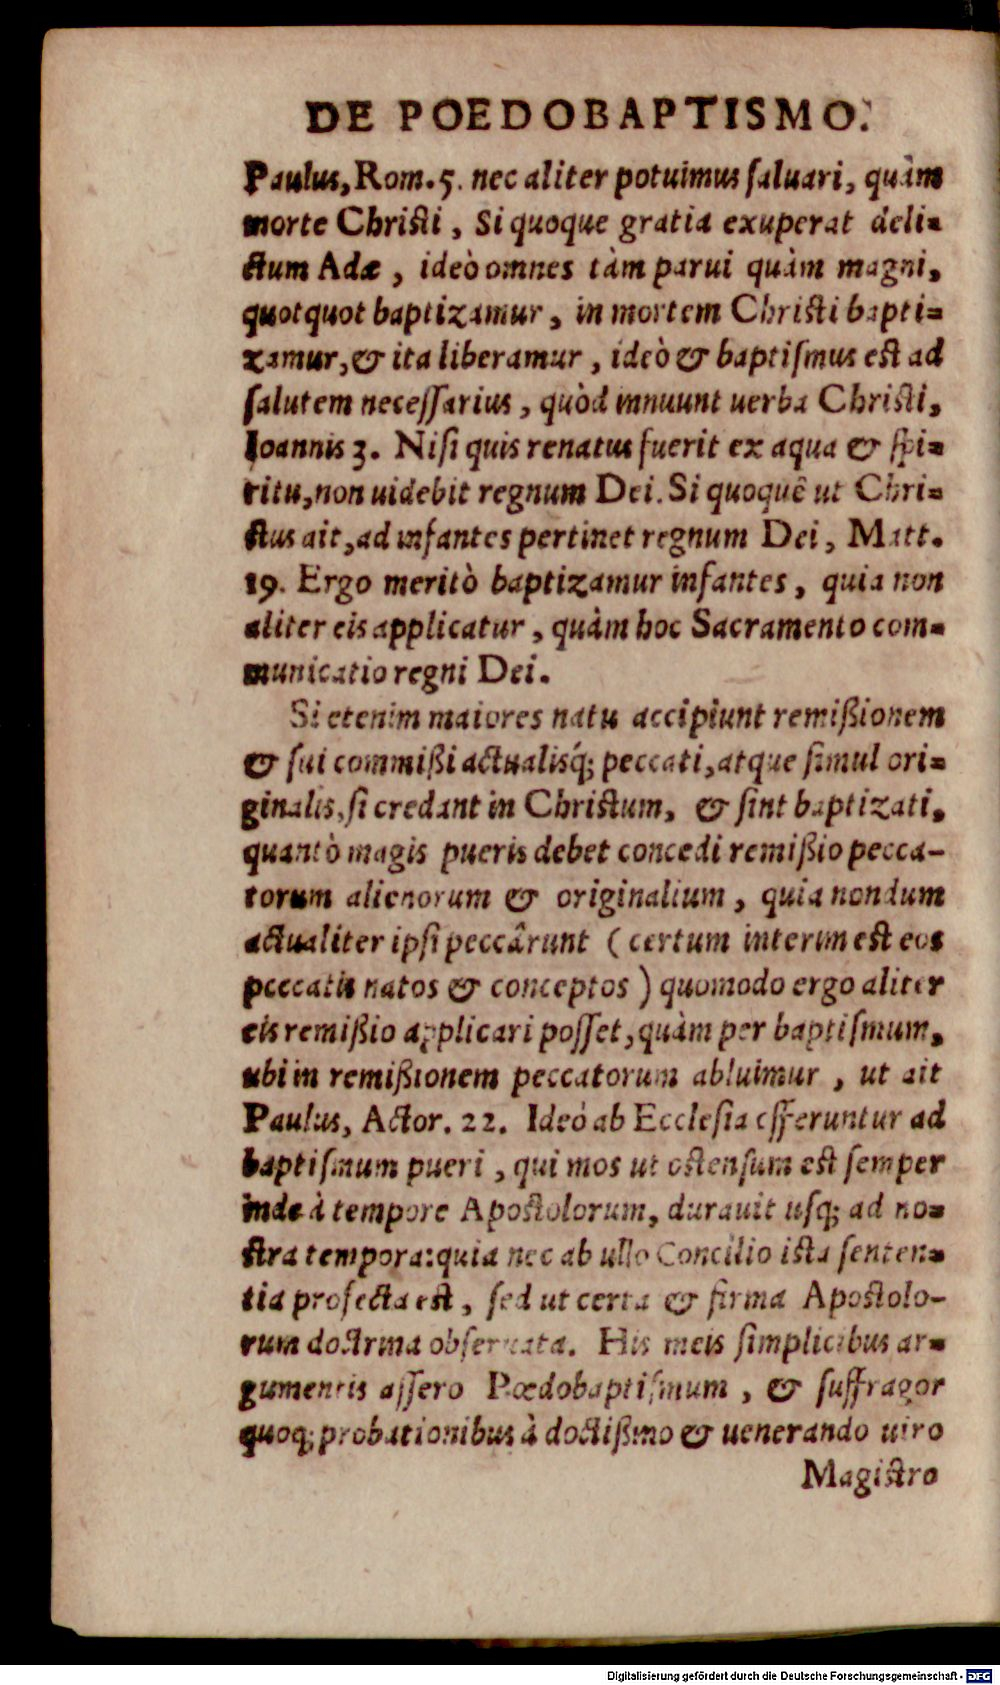 DE POEDOBAPTISMO.
Paulus, Rom. 5. nec aliter potuimus saluari, quàm
morte Christi, Si quoque gratia exuperat deli-
ctum Adæ, ideò omnes tàm parui quàm magni,
quotquot baptizamur, in mortem Christi bapti-
zamur, & ita liberamur, ideò & baptismus est ad
salutem necessarius, quòd innuunt uerba Christi,
Ioannis 3. Nisi quis renatus fuerit ex aqua & spi-
ritu, non uidebit regnum Dei. Si quoquê ut Chri-
stus ait, ad infantes pertinet regnum Dei, Matt.
19. Ergo meritò baptizamur infantes, quia non
aliter eis applicatur, quàm hoc Sacramento com-
municatio regni Dei.
Si etenim maiores natu accipiunt remißionem
& sui commißi actualisq́; peccati, atque simul ori-
ginalis, si credant in Christum, & sint baptizati,
quantò magis pueris debet concedi remißio pecca-
torum alienorum & originalium, quia nondum
actualiter ipsi peccârunt (certum interim est eos
peccatis natos & conceptos) quomodo ergo aliter
eis remißio applicari posset, quàm per baptismum,
ubi in remißionem peccatorum abluimur, ut ait
Paulus, Actor. 22. Ideò ab Ecclesia efferuntur ad
baptismum pueri, qui mos ut ostensum est semper
inde à tempore Apostolorum, durauit usq; ad no-
stra tempora: quia nec ab ullo Concilio ista senten-
tia profecta est, sed ut certa & firma Apostolo-
rum doctrina obseruata. His meis simplicibus ar-
gumentis assero Pœdobaptismum, & suffragor
quoq; probationibus à doctißimo & uenerando uiro
Magistro
Digitalisierung gefördert durch die Deutsche Forschungsgemeinschaft - DFG